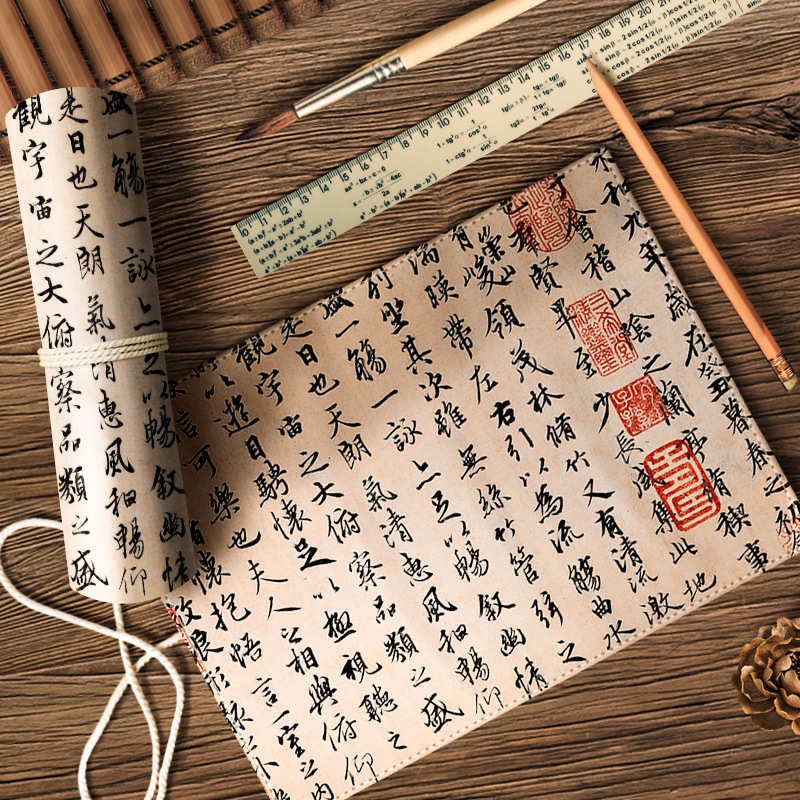 盛一觴一詠亦足以暢叙幽情
是日也天朗氣清惠風和暢仰
觀宇宙之大俯察品類之盛
永和九年歲在癸丑暮春之初
于會稽山陰之蘭亭脩禊事
也羣賢畢至少長咸集此地
有崇山峻領茂林脩竹又有清流激
湍暎帶左右引以為流觴曲水
列坐其次雖無絲竹管弦之
盛一觴一詠亦足以暢叙幽情
是日也天朗氣清惠風和暢仰
觀宇宙之大俯察品類之盛
以遊目騁懷足以極視聽之
信可樂也夫人之相與俯仰
懷抱悟言一室之內
放浪形骸之外
0 1 2 3 4 5 6 7 8 9 10 11 12 13 14 15 16 17 18 19 20